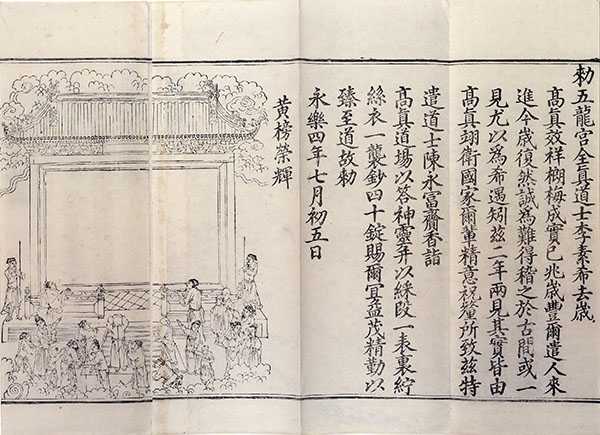 勑五龍宮全真道士李素希去歲
髙真效祥榔梅成實已兆歲豐爾遣人來
進今歲復然誠爲難得稽之於古間或一
見尤以爲希遇矧茲二年兩見其實皆由
髙真翊衛國家爾輩精意祝釐所致茲特
遣道士陳永富齎香詣
髙真道場以答神靈并以綵段一表裏紵
絲衣一襲鈔四十錠賜爾冝益茂精勤以
臻至道故勑
永樂四年七月初五日
黃榜榮輝